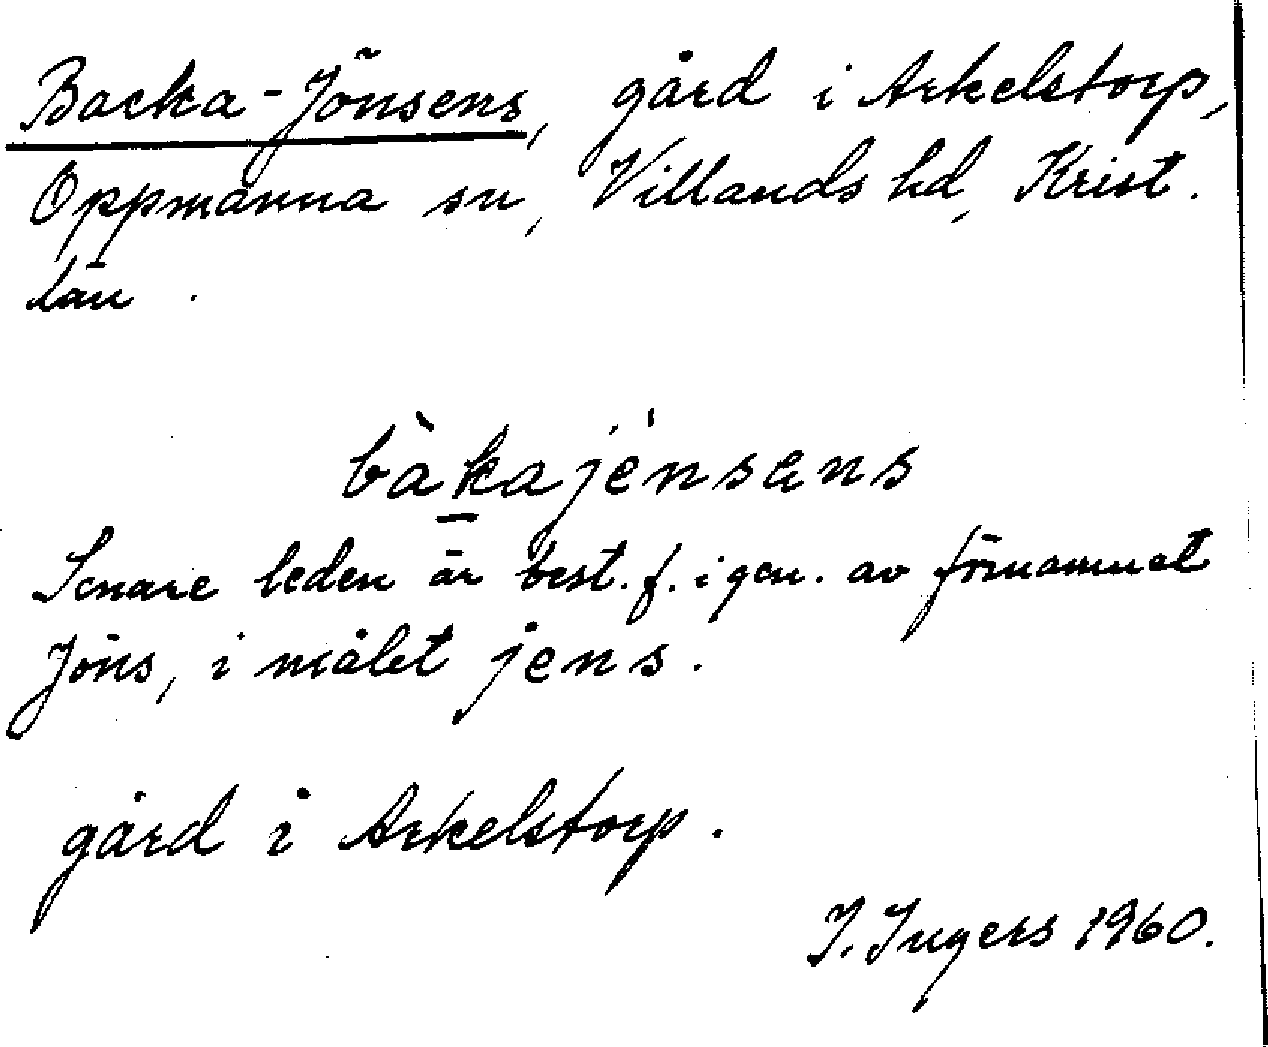 Backa-Jönsens, gård i Arkelstorp,
Oppmanna sn, Villands hd, Krist.
län.
bàkajénsens
Senare leden är best. f. i gen. av förnamnet
Jöns, i målet jens.
gård i Arkelstorp.
I. Ingers 1960.